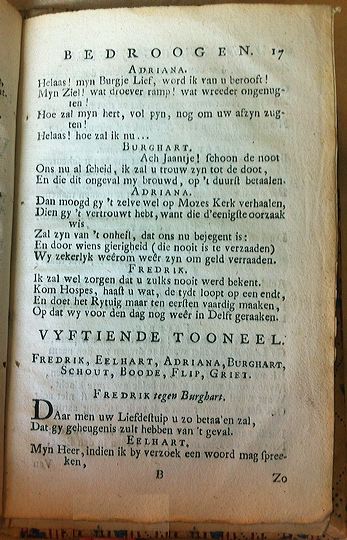 BEDROOGEN. 17
ADRIANA.
Helaas! myn Burgje Lief, word ik van u berooft!
Myn Ziel! wat droever ramp! wat wreeder ongenug-
ten!
Hoe zal myn hert, vol pyn, nog om uw afzyn zug-
ten!
Helaas! hoe zal ik nu...
BURGHART.
Ach Jaantje! schoon de noot
Ons nu al scheid, ik zal u trouw zyn tot de doot,
En die dit ongeval my brouwd, op 't duurst betaalen.
ADRIANA.
Dan moogd gy 't zelve wel op Mozes Kerk verhaalen,
Dien gy 't vertrouwt hebt, want die d'eenigste oorzaak
wis
Zal zyn van 't onheil, dat ons nu bejegent is:
En door wiens gierigheid (die nooit is te verzaaden)
Wy zekerlyk weêrom weêr zyn om geld verraaden.
FREDRIK.
Ik zal wel zorgen dat u zulks nooit werd bekent.
Kom Hospes, haast u wat, de tydt loopt op een endt,
En doet het Rytuig maar ten eersten vaardig maaken,
Op dat wy voor den dag nog weêr in Delft geraaken.
VYFTIENDE TOONEEL.
FREDRIK, EELHART, ADRIANA, BURGHART,
SCHOUT, BOODE, FLIP, GRIET.
FREDRIK tegen Burghart.
Daar men uw Liefdestuip u zo betaa'en zal,
Dat gy geheugenis zult hebben van 't geval.
EELHART.
Myn Heer, indien ik by verzoek een woord mag spree-
ken,
B Zo